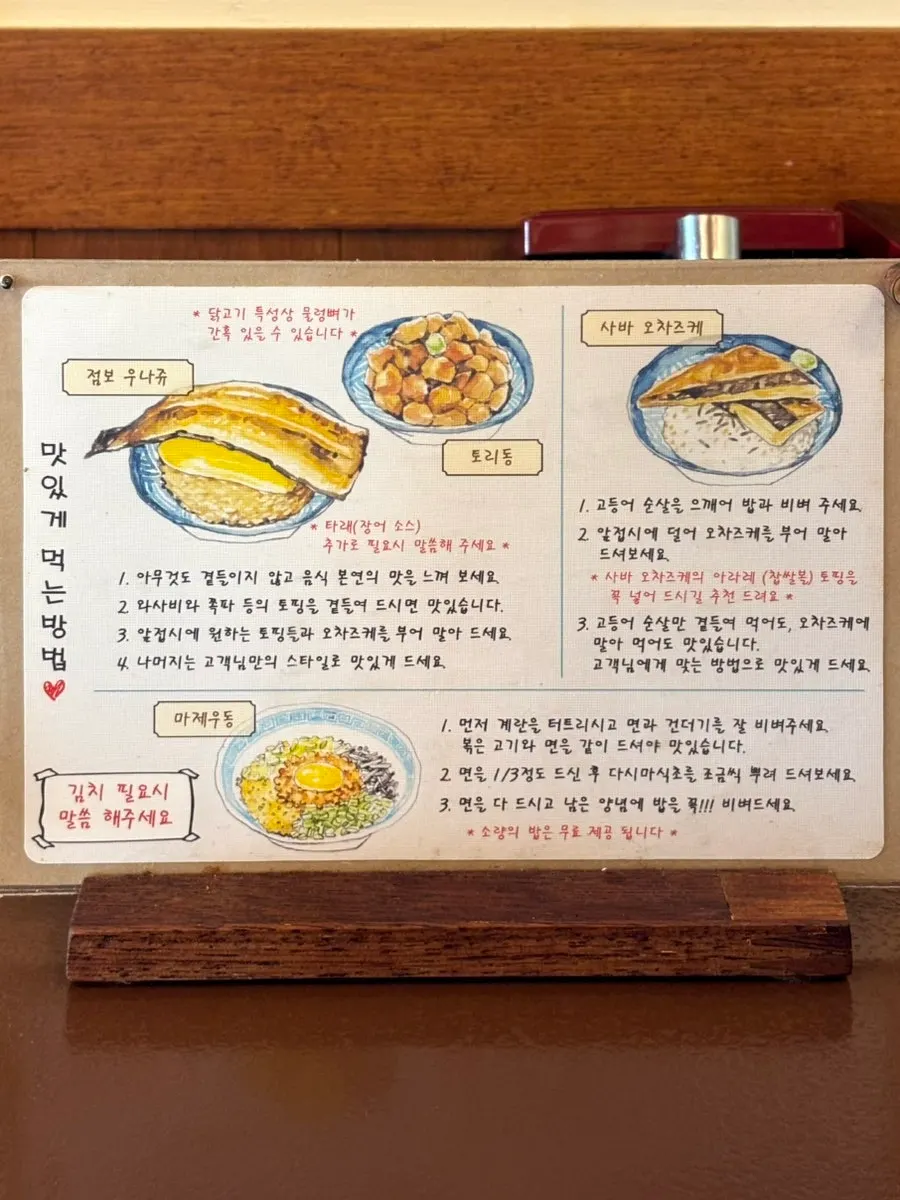 맛있게 먹는방법
* 닭고기 특성상 물렁뼈가
간혹 있을 수 있습니다 *
점보 우나쥬
토리동
* 타래(장어 소스)
추가로 필요시 말씀해 주세요 *
1. 아무것도 곁들이지 않고 음식 본연의 맛을 느껴 보세요.
2. 와사비와 쪽파 등의 토핑을 곁들여 드시면 맛있습니다.
3. 앞접시에 원하는 토핑들과 오차즈케를 부어 말아 드세요.
4. 나머지는 고객님만의 스타일로 맛있게 드세요.
사바 오차즈케
1. 고등어 순살을 으깨어 밥과 비벼 주세요.
2. 앞접시에 덜어 오차즈케를 부어 말아
드셔보세요.
* 사바 오차즈케의 아라레 (찹쌀볼) 토핑을
꼭 넣어 드시길 추천 드려요 *
3. 고등어 순살만 곁들여 먹어도, 오차즈케에
말아 먹어도 맛있습니다.
고객님에게 맞는 방법으로 맛있게 드세요.
마제우동
1. 먼저 계란을 터트리시고 면과 건더기를 잘 비벼주세요.
볶은 고기와 면을 같이 드셔야 맛있습니다.
2. 면을 1/3정도 드신 후 다시마식초를 조금씩 뿌려 드셔보세요.
3. 면을 다 드시고 남은 양념에 밥을 꼭!!! 비벼드세요.
* 소량의 밥은 무료 제공 됩니다 *
김치 필요시
말씀 해주세요